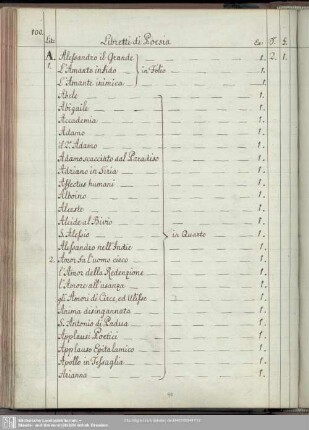 100. Lib: Libretti di Poesia Ex: T. S.
A. Alessandro il Grande 1. 2. 1.
1. L'Amante infido in Folio 1.
L'Amante inimica 1.
Abele 1.
Abigaile 1.
Accademia 1.
Adamo 1.
il 2do Adamo 1.
Adamo scacciato dal Paradiso 1.
Adriano in Siria 1.
Affectus humani 1.
Alboino 1.
Alceste 1.
Alcide al Bivio 1.
S. Alessio in Quarto 1.
Alessandro nell'Indie 1.
2. Amor fa l'uomo cieco 1.
l'Amor della Redenzione 1.
l'Amore all'usanza 1.
gli Amori di Circe, ed Ulisse 1.
Anima disingannata 1.
S. Antonio di Padua 1.
Applausi Poetici 1.
Applauso Epitalamico 1.
Apollo in Tessaglia 1.
Arianna 1.